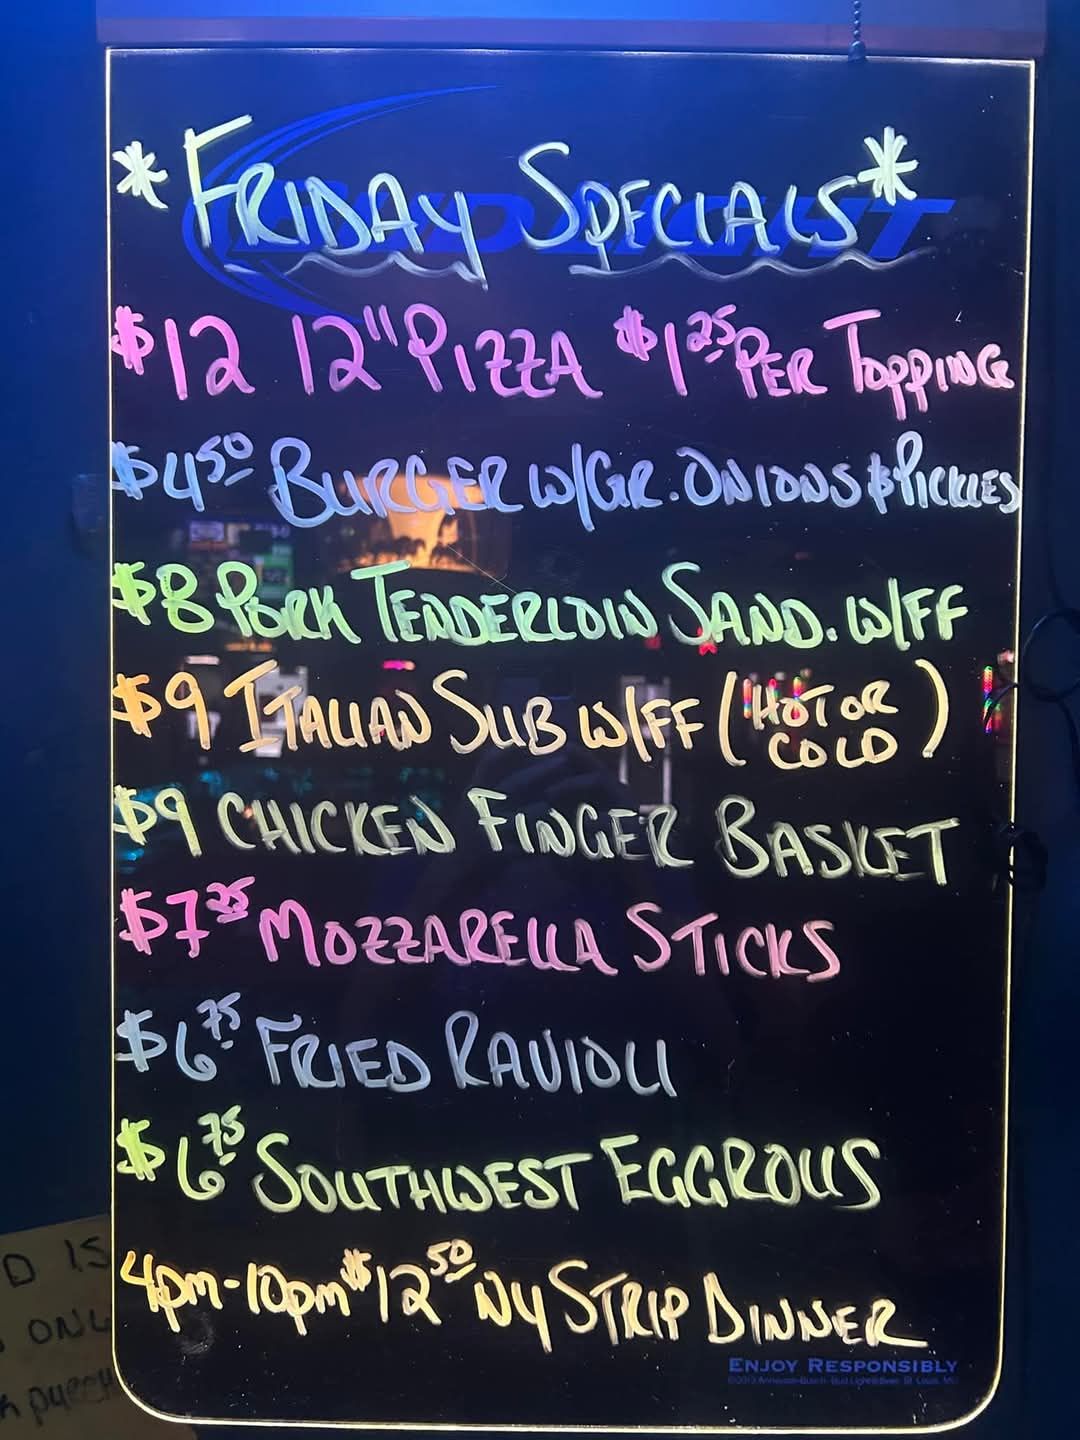 *FRIDAY SPECIALS*
$12 12" PIZZA $1.25 PER TOPPING
$4.50 BURGER W/GR. ONIONS & PICKLES
$8 PORK TENDERLOIN SAND. W/FF
$9 ITALIAN SUB W/FF (HOT OR COLD)
$9 CHICKEN FINGER BASKET
$7.25 MOZZARELLA STICKS
$6.75 FRIED RAVIOLI
$6.75 SOUTHWEST EGGROLLS
4pm-10pm $12.50 NY STRIP DINNER
ENJOY RESPONSIBLY
D IS